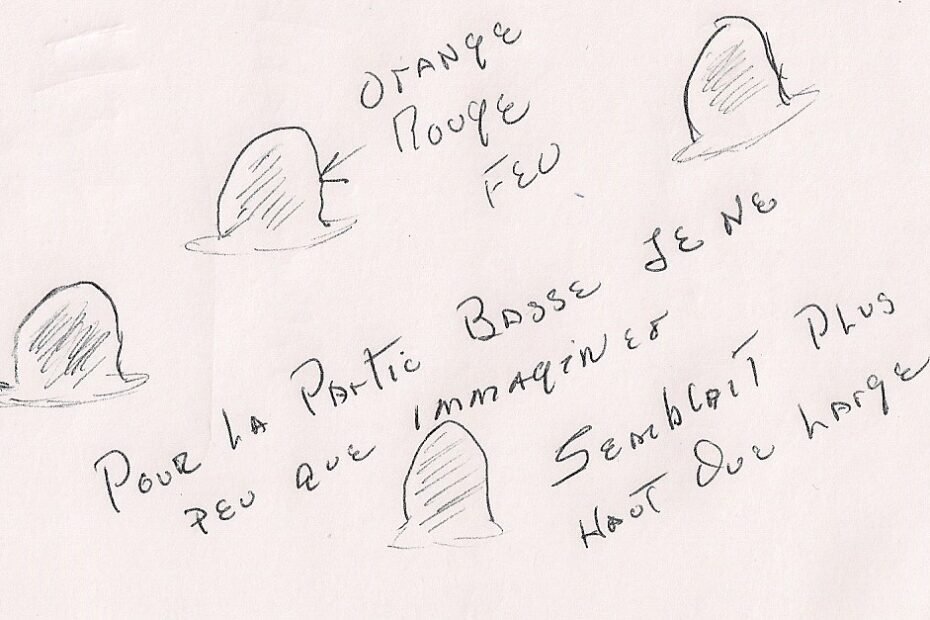 Orange
Rouge
Feu
Pour la Partie Basse je ne
peu que immaginer
Semblait Plus
Haut Que Large